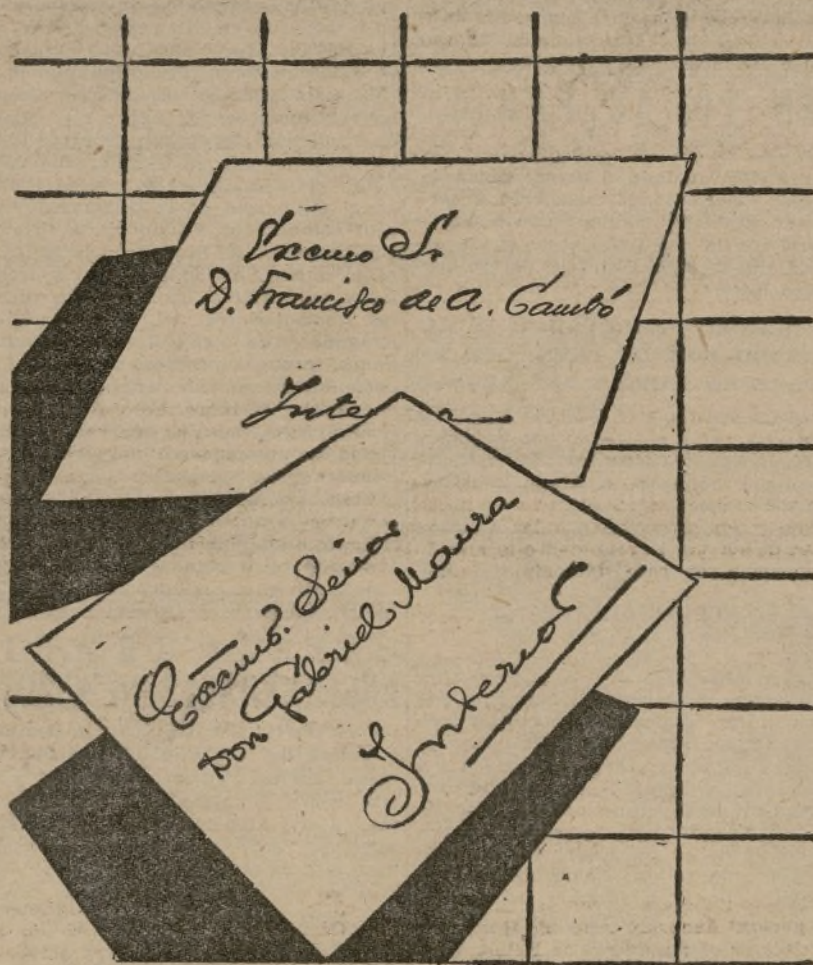 Excmo Sr
D. Francisco de A. Cambó
Inte r
Excmo. Señor
Don Gabriel Maura
Interior